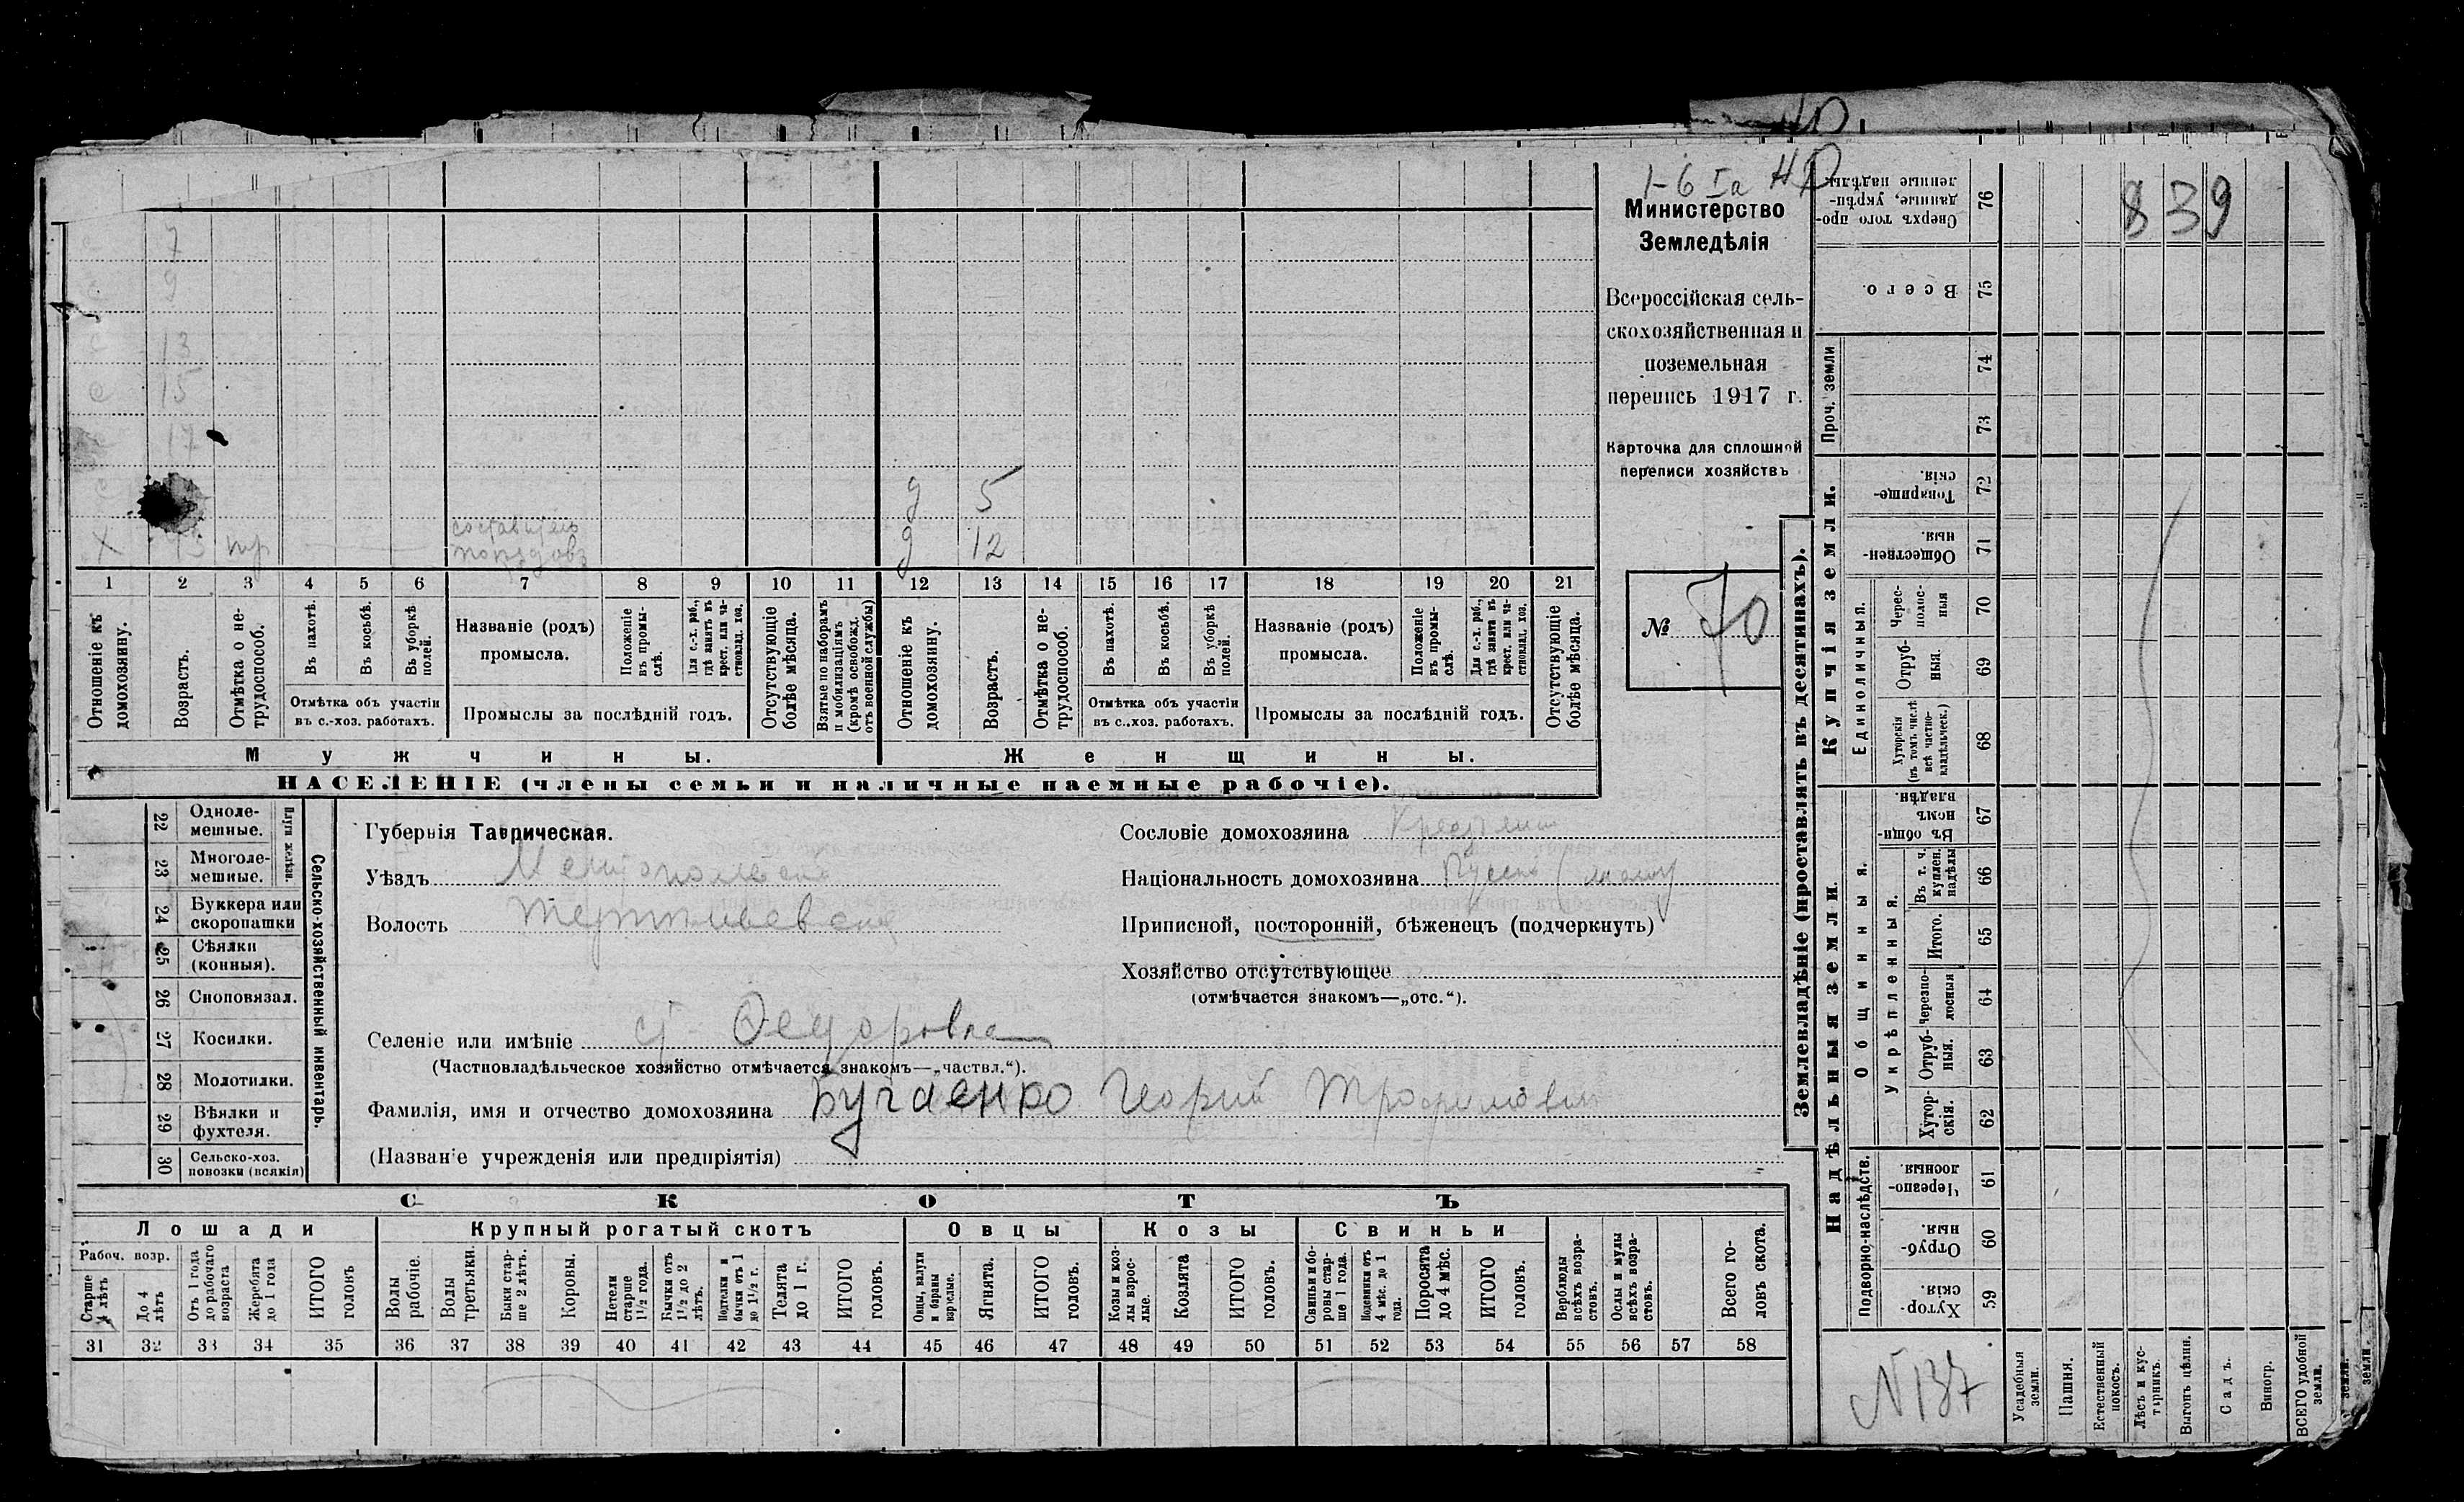 1-6 Iа
Министерство
Земледѣлія
Всероссійская сель-
скохозяйственная и
поземельная
перепись 1917 г.
Карточка для сплошной
переписи хозяйствъ
№ 70
7
9
с 13
с 15
17
с
Х пр
д 5
д 12
1 2 3 4 5 6 7 8 9 10 11 12 13 14 15 16 17 18 19 20 21
Отношеніе къ
домохозяину.
Возрастъ.
Отмѣтка о не-
трудоспособ.
Въ пахотѣ.
Въ косьбѣ.
Въ уборкѣ
полей.
Отмѣтка объ участіи
въ с.-хоз. работахъ.
Названіе (родъ)
промысла.
Положеніе
въ промы-
слѣ.
Для с.-х. раб.,
гдѣ занятъ въ
крест. или ча-
стновлад. хоз.
Промыслы за послѣдній годъ.
Отсутствующіе
болѣе мѣсяца.
Взятые по наборамъ
и мобилизаціямъ
(кромѣ освобожд.
отъ военной службы)
Отношеніе къ
домохозяину.
Возрастъ.
Отмѣтка о не-
трудоспособ.
Въ пахотѣ.
Въ косьбѣ.
Въ уборкѣ
полей.
Отмѣтка объ участіи
въ с..хоз. работахъ.
Названіе (родъ)
промысла.
Положеніе
въ промы-
слѣ.
Для с.-х. раб.,
гдѣ занята въ
крест. или ча-
стновлад. хоз.
Промыслы за послѣдній годъ.
Отсутствующіе
болѣе мѣсяца.
Мужчины.
Женщины.
НАСЕЛЕНІЕ (члены семьи и наличные наемные рабочіе).
22 Одноле-
мешные.
23 Многоле-
мешные.
Плуги желѣзн.
24 Буккера или
скоропашки
25 Сѣялки
(конныя).
26 Сноповязал.
27 Косилки.
28 Молотилки.
29 Вѣялки и
фухтеля.
30 Сельско-хоз.
повозки (всякія)
Сельско-хозяйственный инвентарь.
Губернія Таврическая.
Уѣздъ Мелитопольскій
Волость
Селеніе или имѣніе Федоровка
(Частновладѣльческое хозяйство отмѣчается знакомъ—„частвл.“).
Фамилія, имя и отчество домохозяина Бугаенко Георгій Трофимович
(Названіе учрежденія или предпріятія)
Сословіе домохозяина
Національность домохозяина
Приписной, посторонній, бѣженецъ (подчеркнуть)
Хозяйство отсутствующее
(отмѣчается знакомъ—„отс.“).
СКОТЪ
Лошади
Крупный рогатый скотъ
Овцы
Козы
Свиньи
Рабоч. возр.
Старше
4 лѣтъ
До 4
лѣтъ
Отъ 1 года
до рабочаго
возраста
Жеребята
до 1 года
ИТОГО
головъ
Волы
рабочіе.
Волы
третьяки.
Быки стар-
ше 2 лѣтъ.
Коровы.
Нетели
старше
1½ года.
Бычки отъ
1½ до 2
лѣтъ.
Подтелки и
бычки отъ 1
до 1½ г.
Телята
до 1 г.
ИТОГО
головъ.
Овцы, валухи
и бараны
взрослые.
Ягнята.
ИТОГО
головъ.
Козы и коз-
лы взрос-
лые.
Козлята
ИТОГО
головъ.
Свиньи и бо-
ровы стар-
ше 1 года.
Подсвинки отъ
4 мѣс. до 1
года.
Поросята
до 4 мѣс.
ИТОГО
головъ.
Верблюды
всѣхъ возра-
стовъ.
Ослы и мулы
всѣхъ возра-
стовъ.
Всего го-
ловъ скота.
31 32 33 34 35 36 37 38 39 40 41 42 43 44 45 46 47 48 49 50 51 52 53 54 55 56 57 58
Землевладѣніе (проставлять въ десятинахъ).
839
Сверхъ того про-
данные, укрѣп-
ленные надѣлы.
76
Всего.
75
Проч. земли
74
73
Купчія земли.
Товарище-
скія.
72
Обществен-
ныя.
71
Единоличныя.
Черес-
полос-
ныя
70
Отруб-
ныя.
69
Хуторскія
(въ томъ числѣ
всѣ частно-
владѣльческ.)
68
Надѣльныя земли.
Общинныя.
Въ общи-
номъ
владѣн.
67
Укрѣпленныя.
Въ т. ч.
куплен.
надѣлы
66
Итого.
65
Черезпо-
лосныя
64
Отруб-
ныя.
63
Хутор-
скія.
62
Подворно-наслѣдств.
Черезпо-
лосныя.
61
Отруб-
ныя.
60
Хутор-
скія.
59
N 137
Усадебныя
земли.
Пашня.
Естественный
покосъ.
Лѣсъ и кус-
тарникъ.
Выгонъ цѣлин.
Садъ.
Виногр.
ВСЕГО удобной
земли.
земли.
земли.